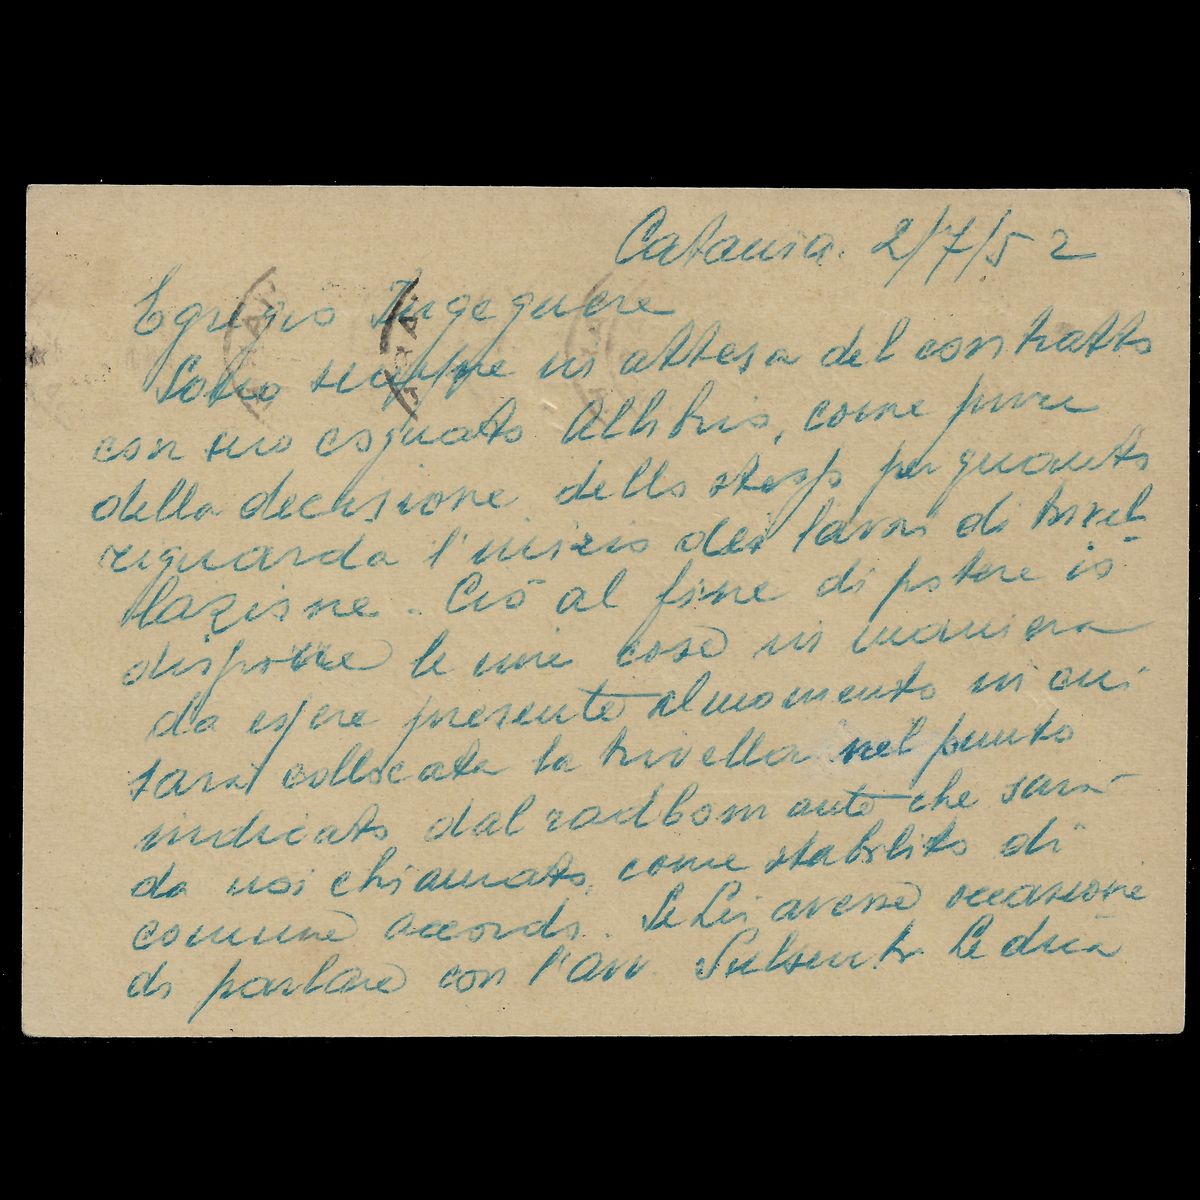 Catania. 2/7/52
Egregio Ingegnere
Sono sempre in attesa del contratto
con suo cognato Allitrio, come pure
della decisione dello stesso per quanto
riguarda l'inizio dei lavori di trivel-
lazione. Ciò al fine di potere io
disporre le mie cose in maniera
da essere presente al momento in cui
sarà collocata la trivella nel punto
indicato dal radbomante che sarà
da noi chiamato, come stabilito di
comune accordo. Se Lei avesse occasione
di parlare con l'avv. le dica